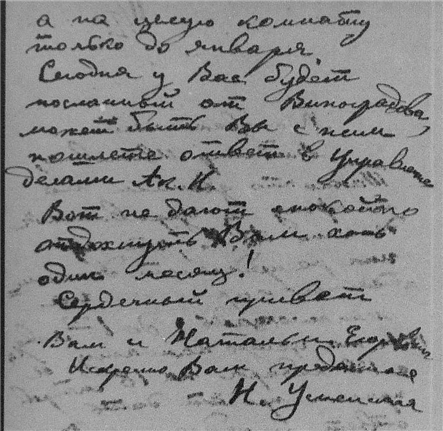 а на целую комнату
только до января
Сегодня у Вас будет
посланный от Виноградова,
может быть Вы с ним
пошлете ответ в Управление
делами Ак. Н.
Вот не дают спокойно
отдохнуть Вам хоть
один месяц!
Сердечный привет
Вам и Наталье Егоровне
Искренно Вам преданная
Н. Успенская